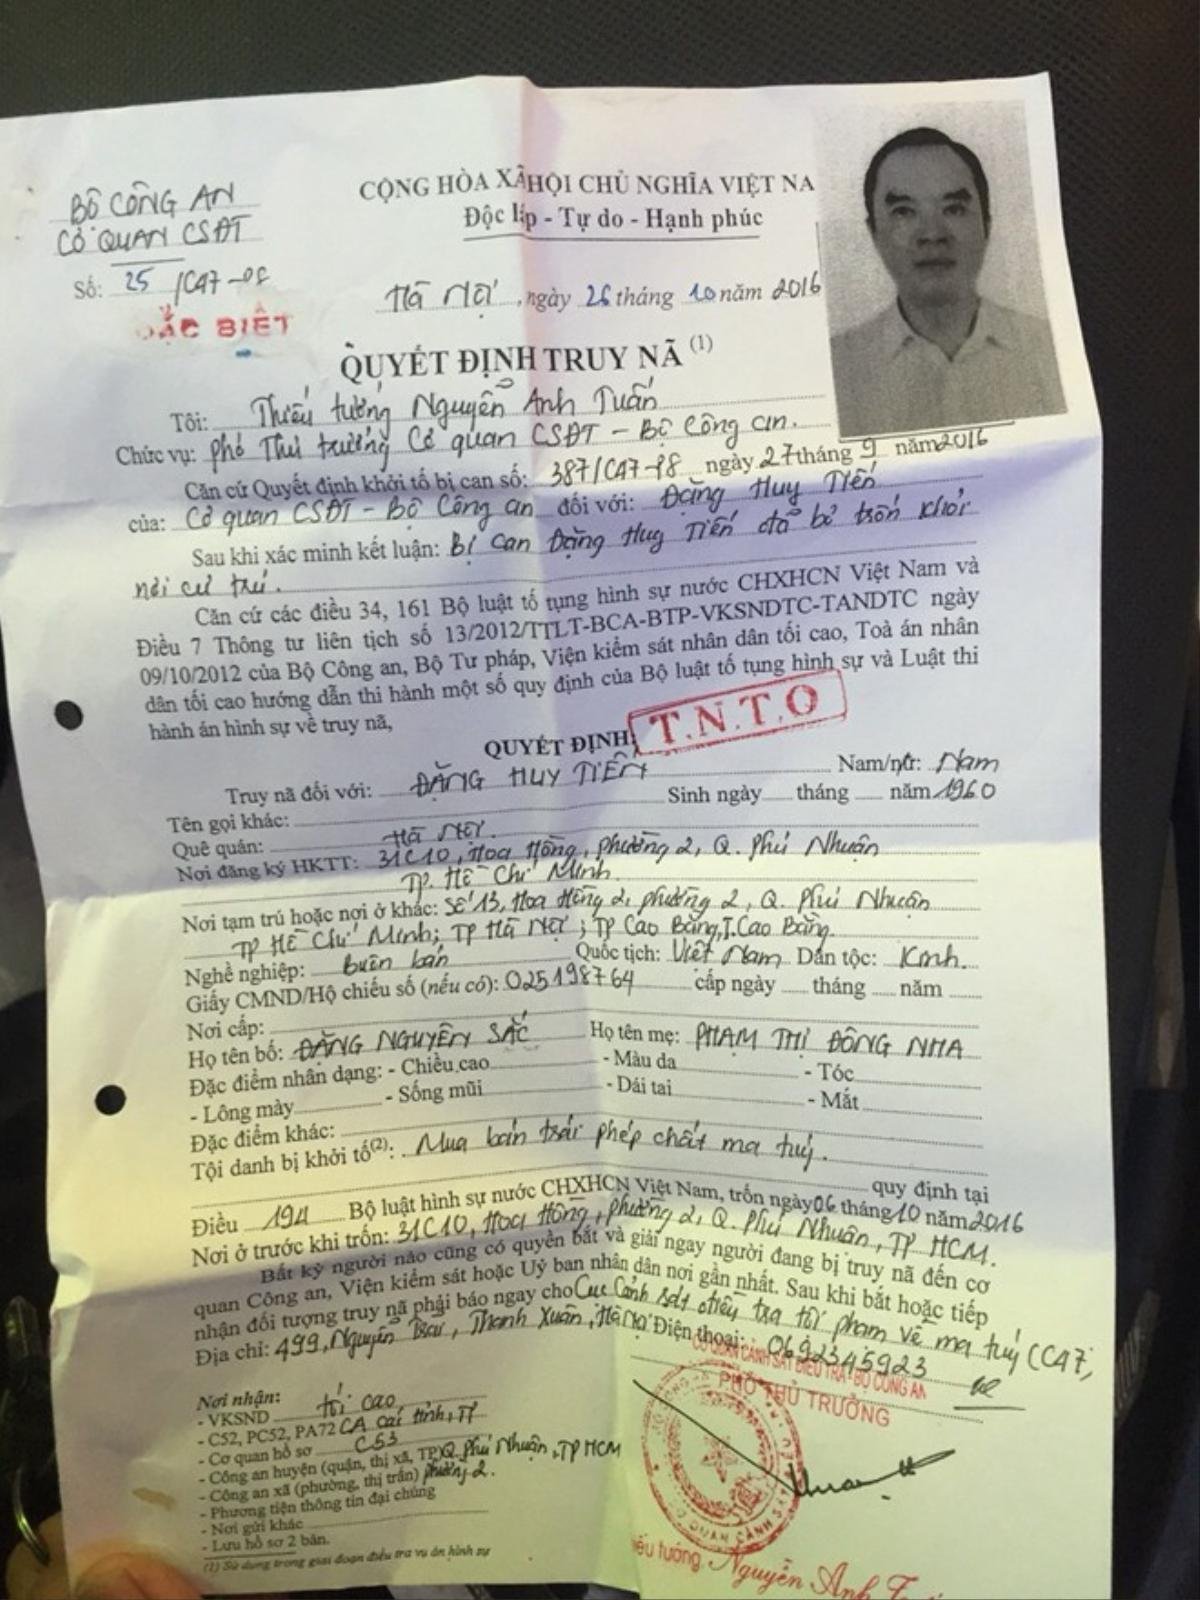 BỘ CÔNG AN
CƠ QUAN CSĐT
Số: 25 /CA7-P8
ĐẶC BIỆT
CỘNG HÒA XÃ HỘI CHỦ NGHĨA VIỆT NA
Độc lập - Tự do - Hạnh phúc
Hà Nội, ngày 26 tháng 10 năm 2016
QUYẾT ĐỊNH TRUY NÃ (1)
Tôi: Thiếu tướng Nguyễn Anh Tuấn
Chức vụ: Phó Thủ trưởng Cơ quan CSĐT - Bộ Công an.
Căn cứ Quyết định khởi tố bị can số: 387/CA7-P8 ngày 27 tháng 9 năm 2016
của: Cơ quan CSĐT - Bộ Công an đối với: Đặng Huy Tiến
Sau khi xác minh kết luận: Bị can Đặng Huy Tiến đã bỏ trốn khỏi
nơi cư trú.
Căn cứ các điều 34, 161 Bộ luật tố tụng hình sự nước CHXHCN Việt Nam và
Điều 7 Thông tư liên tịch số 13/2012/TTLT-BCA-BTP-VKSNDTC-TANDTC ngày
09/10/2012 của Bộ Công an, Bộ Tư pháp, Viện kiểm sát nhân dân tối cao, Toà án nhân
dân tối cao hướng dẫn thi hành một số quy định của Bộ luật tố tụng hình sự và Luật thi
hành án hình sự về truy nã,
T.N.T.O
QUYẾT ĐỊNH:
Truy nã đối với: ĐẶNG HUY TIẾN Nam/nữ: Nam
Tên gọi khác: Sinh ngày tháng năm 1960
Quê quán: Hà Nội.
Nơi đăng ký HKTT: 31C10, Hoa Hồng, phường 2, Q. Phú Nhuận
TP. Hồ Chí Minh.
Nơi tạm trú hoặc nơi ở khác: Số 13, Hoa Hồng 2, phường 2, Q. Phú Nhuận
TP Hồ Chí Minh; TP Hà Nội; TP Cao Bằng, T. Cao Bằng
Nghề nghiệp: buôn bán Quốc tịch: Việt Nam Dân tộc: Kinh.
Giấy CMND/Hộ chiếu số (nếu có): 025198764 cấp ngày tháng năm
Nơi cấp:
Họ tên bố: ĐẶNG NGUYÊN SẮC Họ tên mẹ: PHẠM THỊ ĐÔNG NHA
Đặc điểm nhân dạng: - Chiều cao - Màu da - Tóc
- Lông mày - Sống mũi - Dái tai - Mắt
Đặc điểm khác:
Tội danh bị khởi tố(2): Mua bán trái phép chất ma túy.
quy định tại
Điều 194 Bộ luật hình sự nước CHXHCN Việt Nam, trốn ngày 06 tháng 10 năm 2016
Nơi ở trước khi trốn: 31C10, Hoa Hồng, phường 2, Q. Phú Nhuận, TP HCM.
Bất kỳ người nào cũng có quyền bắt và giải ngay người đang bị truy nã đến cơ
quan Công an, Viện kiểm sát hoặc Uỷ ban nhân dân nơi gần nhất. Sau khi bắt hoặc tiếp
nhận đối tượng truy nã phải báo ngay cho Cục Cảnh sát điều tra tội phạm về ma túy (CA7,
Địa chỉ: 499, Nguyễn Trãi, Thanh Xuân, Hà Nội Điện thoại: 0692345923
Nơi nhận:
- VKSND tối cao
- C52, PC52, PA72 CA các tỉnh, TP
- Cơ quan hồ sơ C53
- Công an huyện (quận, thị xã, TP) Q. Phú Nhuận, TP HCM
- Công an xã (phường, thị trấn) phường 2.
- Phương tiện thông tin đại chúng
- Nơi gửi khác
- Lưu hồ sơ 2 bản.
(1) Sử dụng trong giai đoạn điều tra vụ án hình sự
CƠ QUAN CẢNH SÁT ĐIỀU TRA - BỘ CÔNG AN
PHÓ THỦ TRƯỞNG
iếu tướng Nguyễn Anh